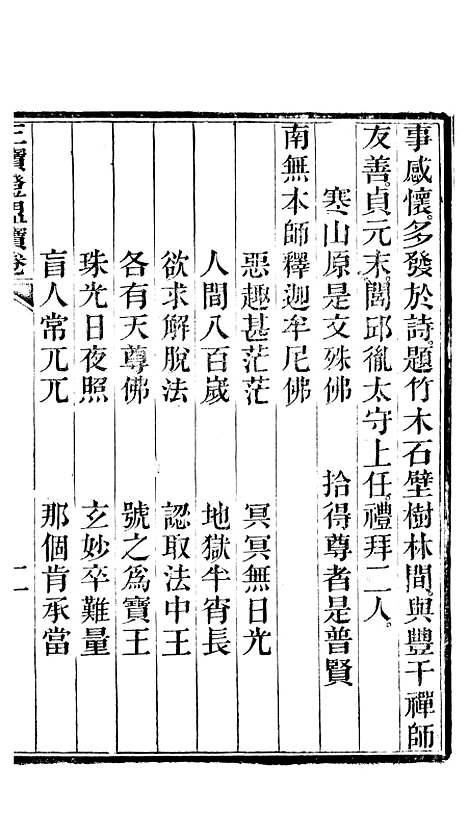 事感懷。多發於詩。題竹木石壁樹林間。與豐干禪師
友善。貞元末。閭邱胤太守上任。禮拜二人。
寒山原是文殊佛　拾得尊者是普賢
南無本師釋迦牟尼佛
惡趣甚茫茫　冥冥無日光
人間八百歲　地獄半宵長
欲求解脫法　認取法中王
各有天尊佛　號之爲寶王
珠光日夜照　玄妙卒難量
盲人常兀兀　那個肯承當
三寶證盟寶卷　二